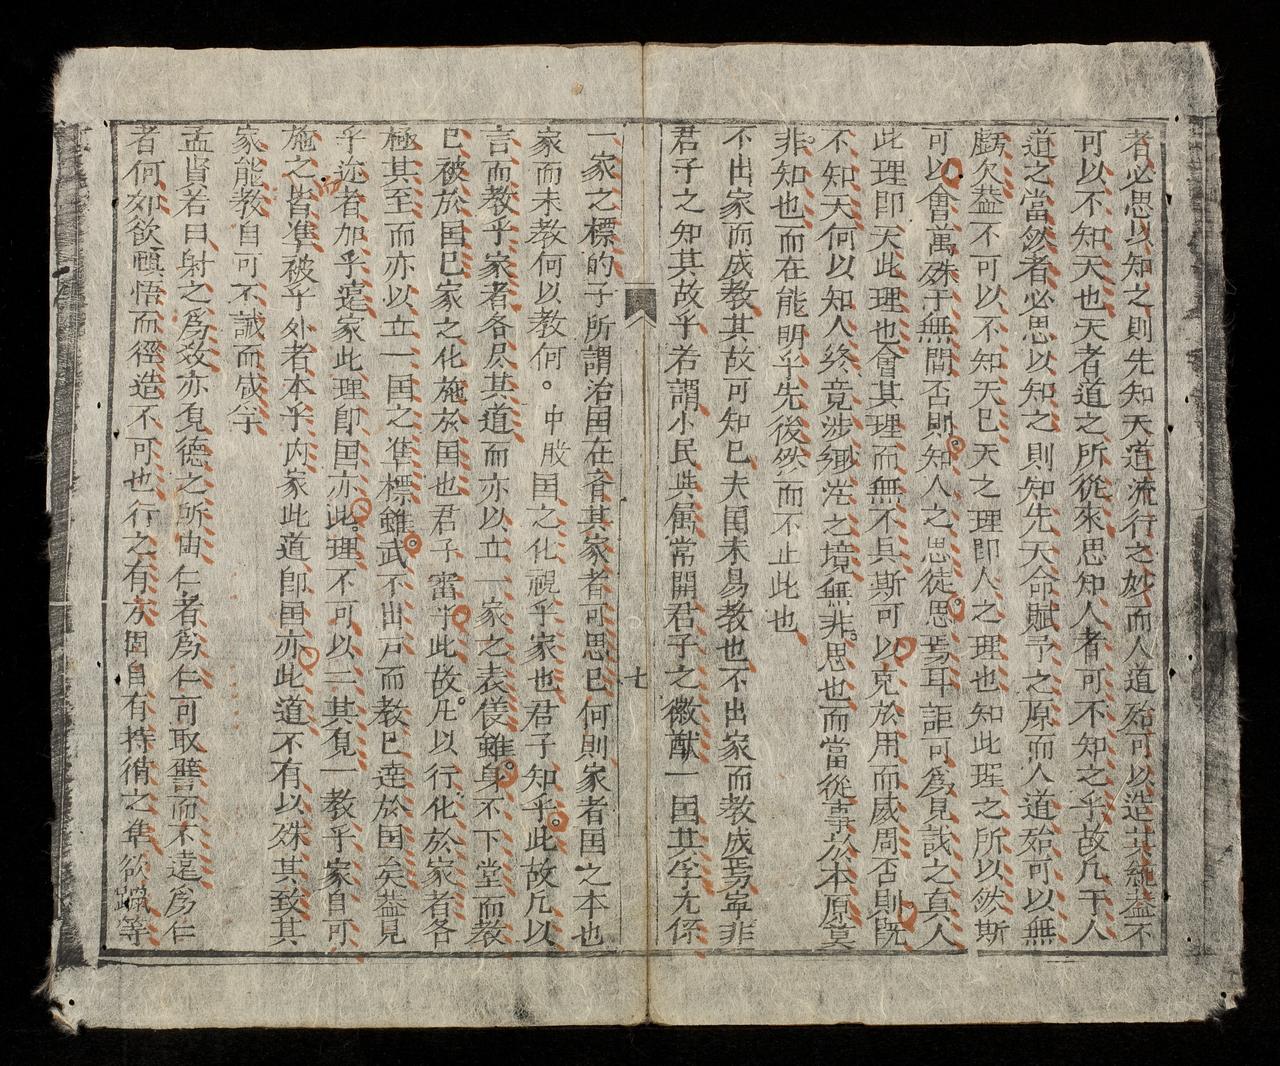 者必思以知之則先知天道流行之妙而人道殆可以造其統蓋不
可以不知天也天者道之所從來思知人者可不知之乎故凡千人
道之當然者必思以知之則知先天命賦予之原而人道殆可以無
虧欠蓋不可以不知天巳天之理即人之理也知此理之所以然斯
可以會萬殊于無間否則知人之思徒思焉耳詎可爲見誠之真人
此理即天此理也會其理而無不具斯可以克於用而咸周否則既
不知天何以知人終竟涉緲茫之境無非思也而當從事於本原莫
非知也而在能明乎先後然而不止此也
不出家而成教其故可知巳夫国未易教也不出家而教成焉寜非
君子之知其故乎若謂小民具屬常開君子之徽猷一国其孚尤係
七
一家之標的子所謂治国在斉其家者可思巳何則家者国之本也
家而未教何以教何。中股国之化視乎家也君子知乎此故凡以
言而教乎家者各尽其道而亦以立一家之表儀雖身不下堂而教
巳被於国巳家之化施於国也君子審乎此故凡以行化於家者各
極其至而亦以立一国之準標雖武不出戸而教巳達於国矣蓋見
乎迩者加乎遠家此理即国亦此理不可以二其見一教乎家自可
施之皆準被乎外者本乎内家此道即国亦此道不有以殊其致其
家能教自可不誠而成乎
孟賢若曰射之爲发亦見德之所由仁者爲仁可取譬而不遠爲仁
者何如飲 悟而徑造不可也行之有方固自有持循之準欲躐等